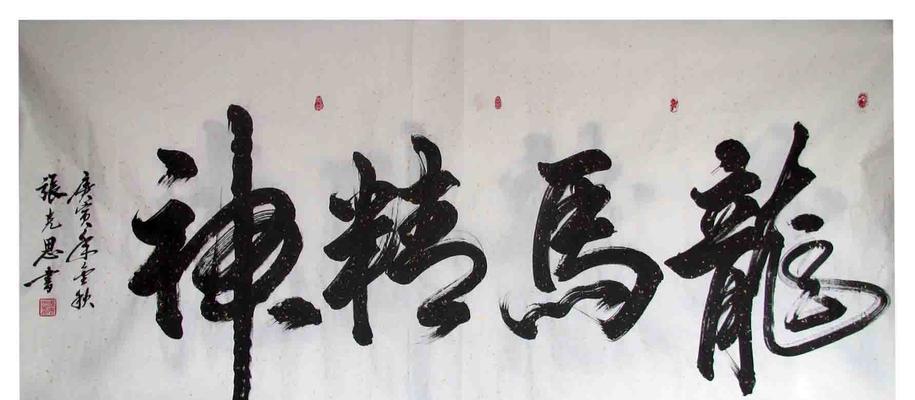 龍馬精神
庚寅年金秋
張克恩書